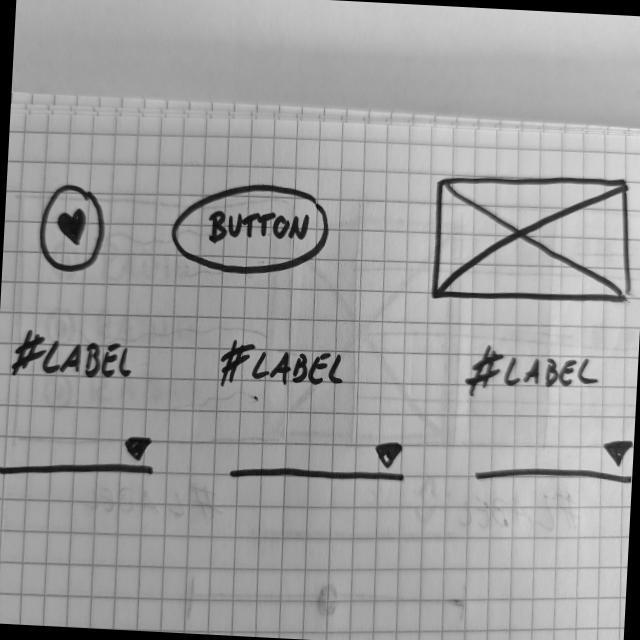 BUTTON
#LABEL #LABEL #LABEL